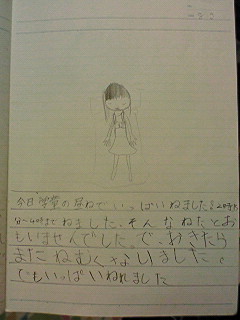 今日学堂のひるねで いっぱいねました2時
から4時までねました。そんなねたとお
もいませんでした。で、おきたら
まだねむくなりました。
でもいっぱいねれました